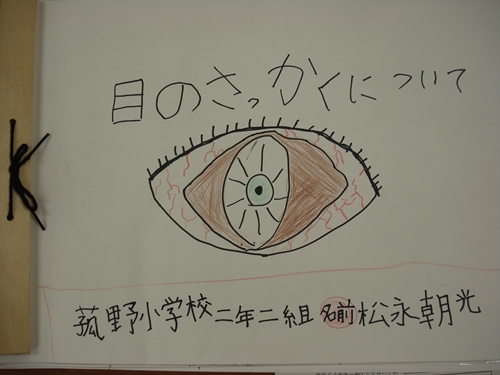 目のさっかくについて
菰野小学校二年二組 名前松永朝光